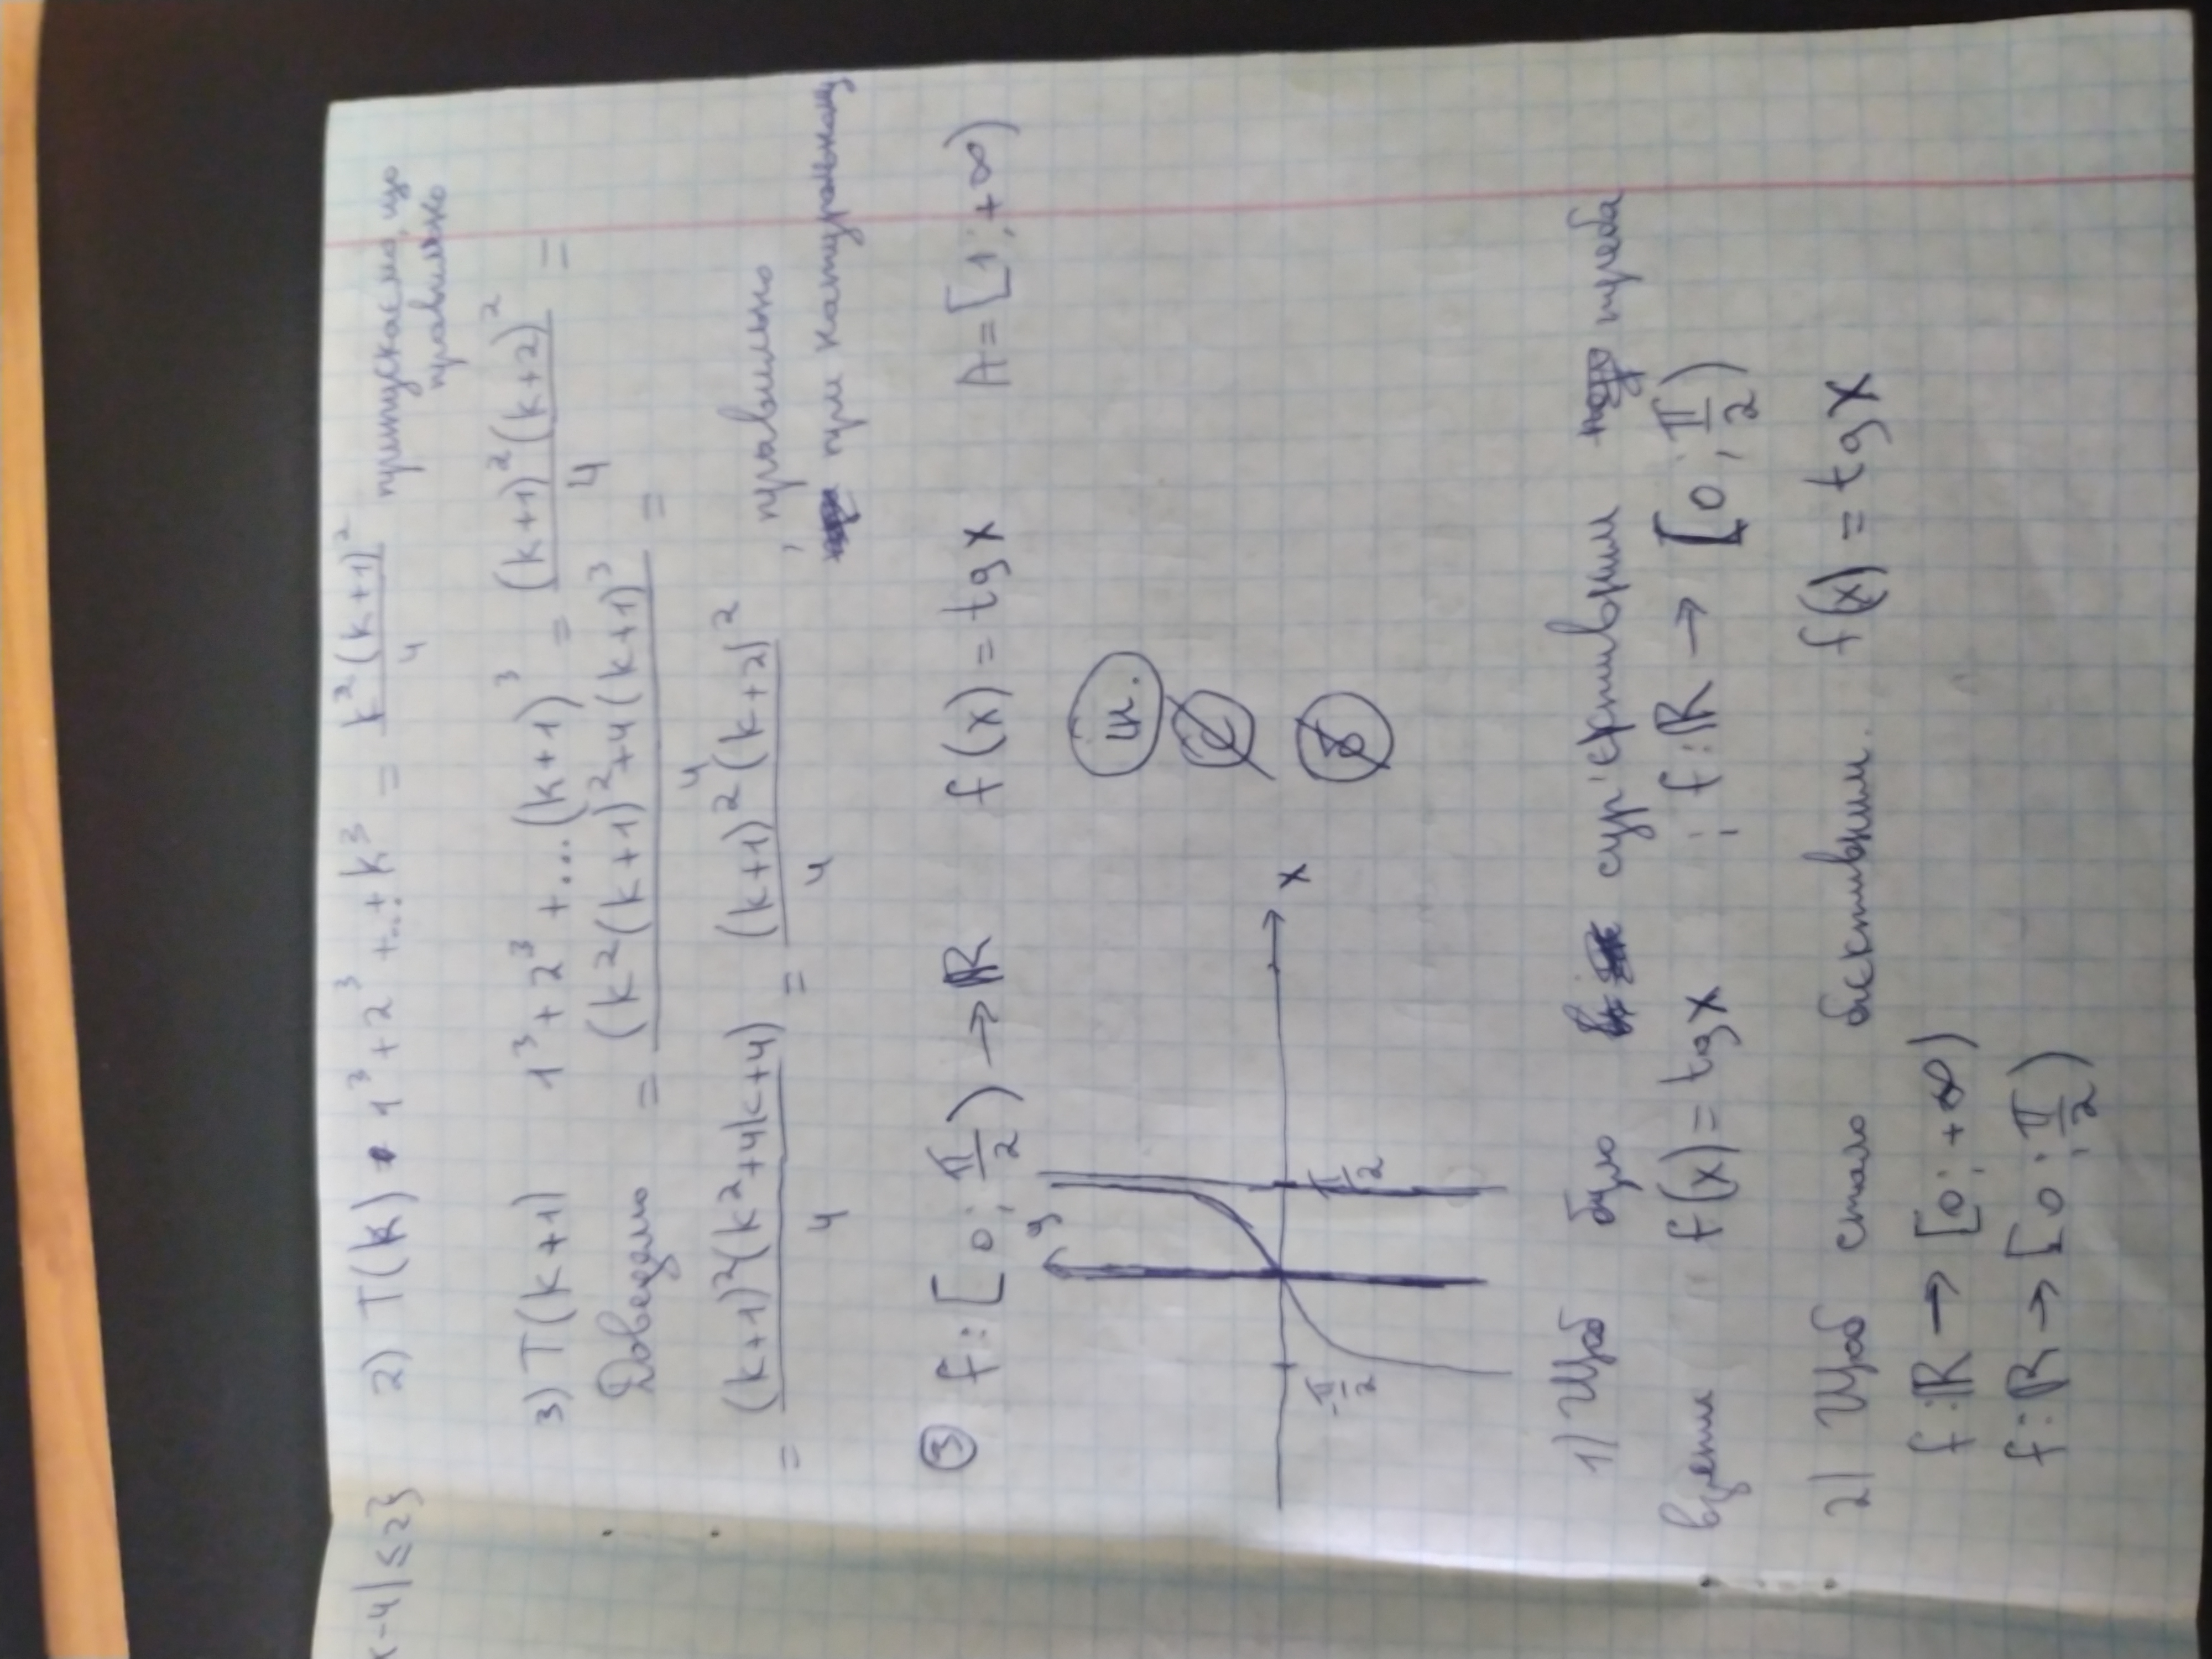 x-4|≤2}
2) T(k) 1³+2³+...+k³ = k²(k+1)²/4 припускаємо, що
правильно
3) T(k+1) 1³+2³+...(k+1)³ = (k+1)²(k+2)²/4 =
Доведемо = (k²(k+1)²+4(k+1)³/4 =
= (k+1)²(k²+4k+4)/4 = (k+1)²(k+2)²/4 , правильно
при натуральному
③ f:[0;π/2)→ℝ f(x)=tgx A=[1;+∞)
y
ін.
С
Б
x
-π/2 π/2
1) Щоб було сур'єктивним треба
взяти f(x)=tgx ; f:ℝ→[0;π/2)
2) Щоб стало бієктивним. f(x)=tgx
f:ℝ→[0;+∞)
f:ℝ→[0;π/2)